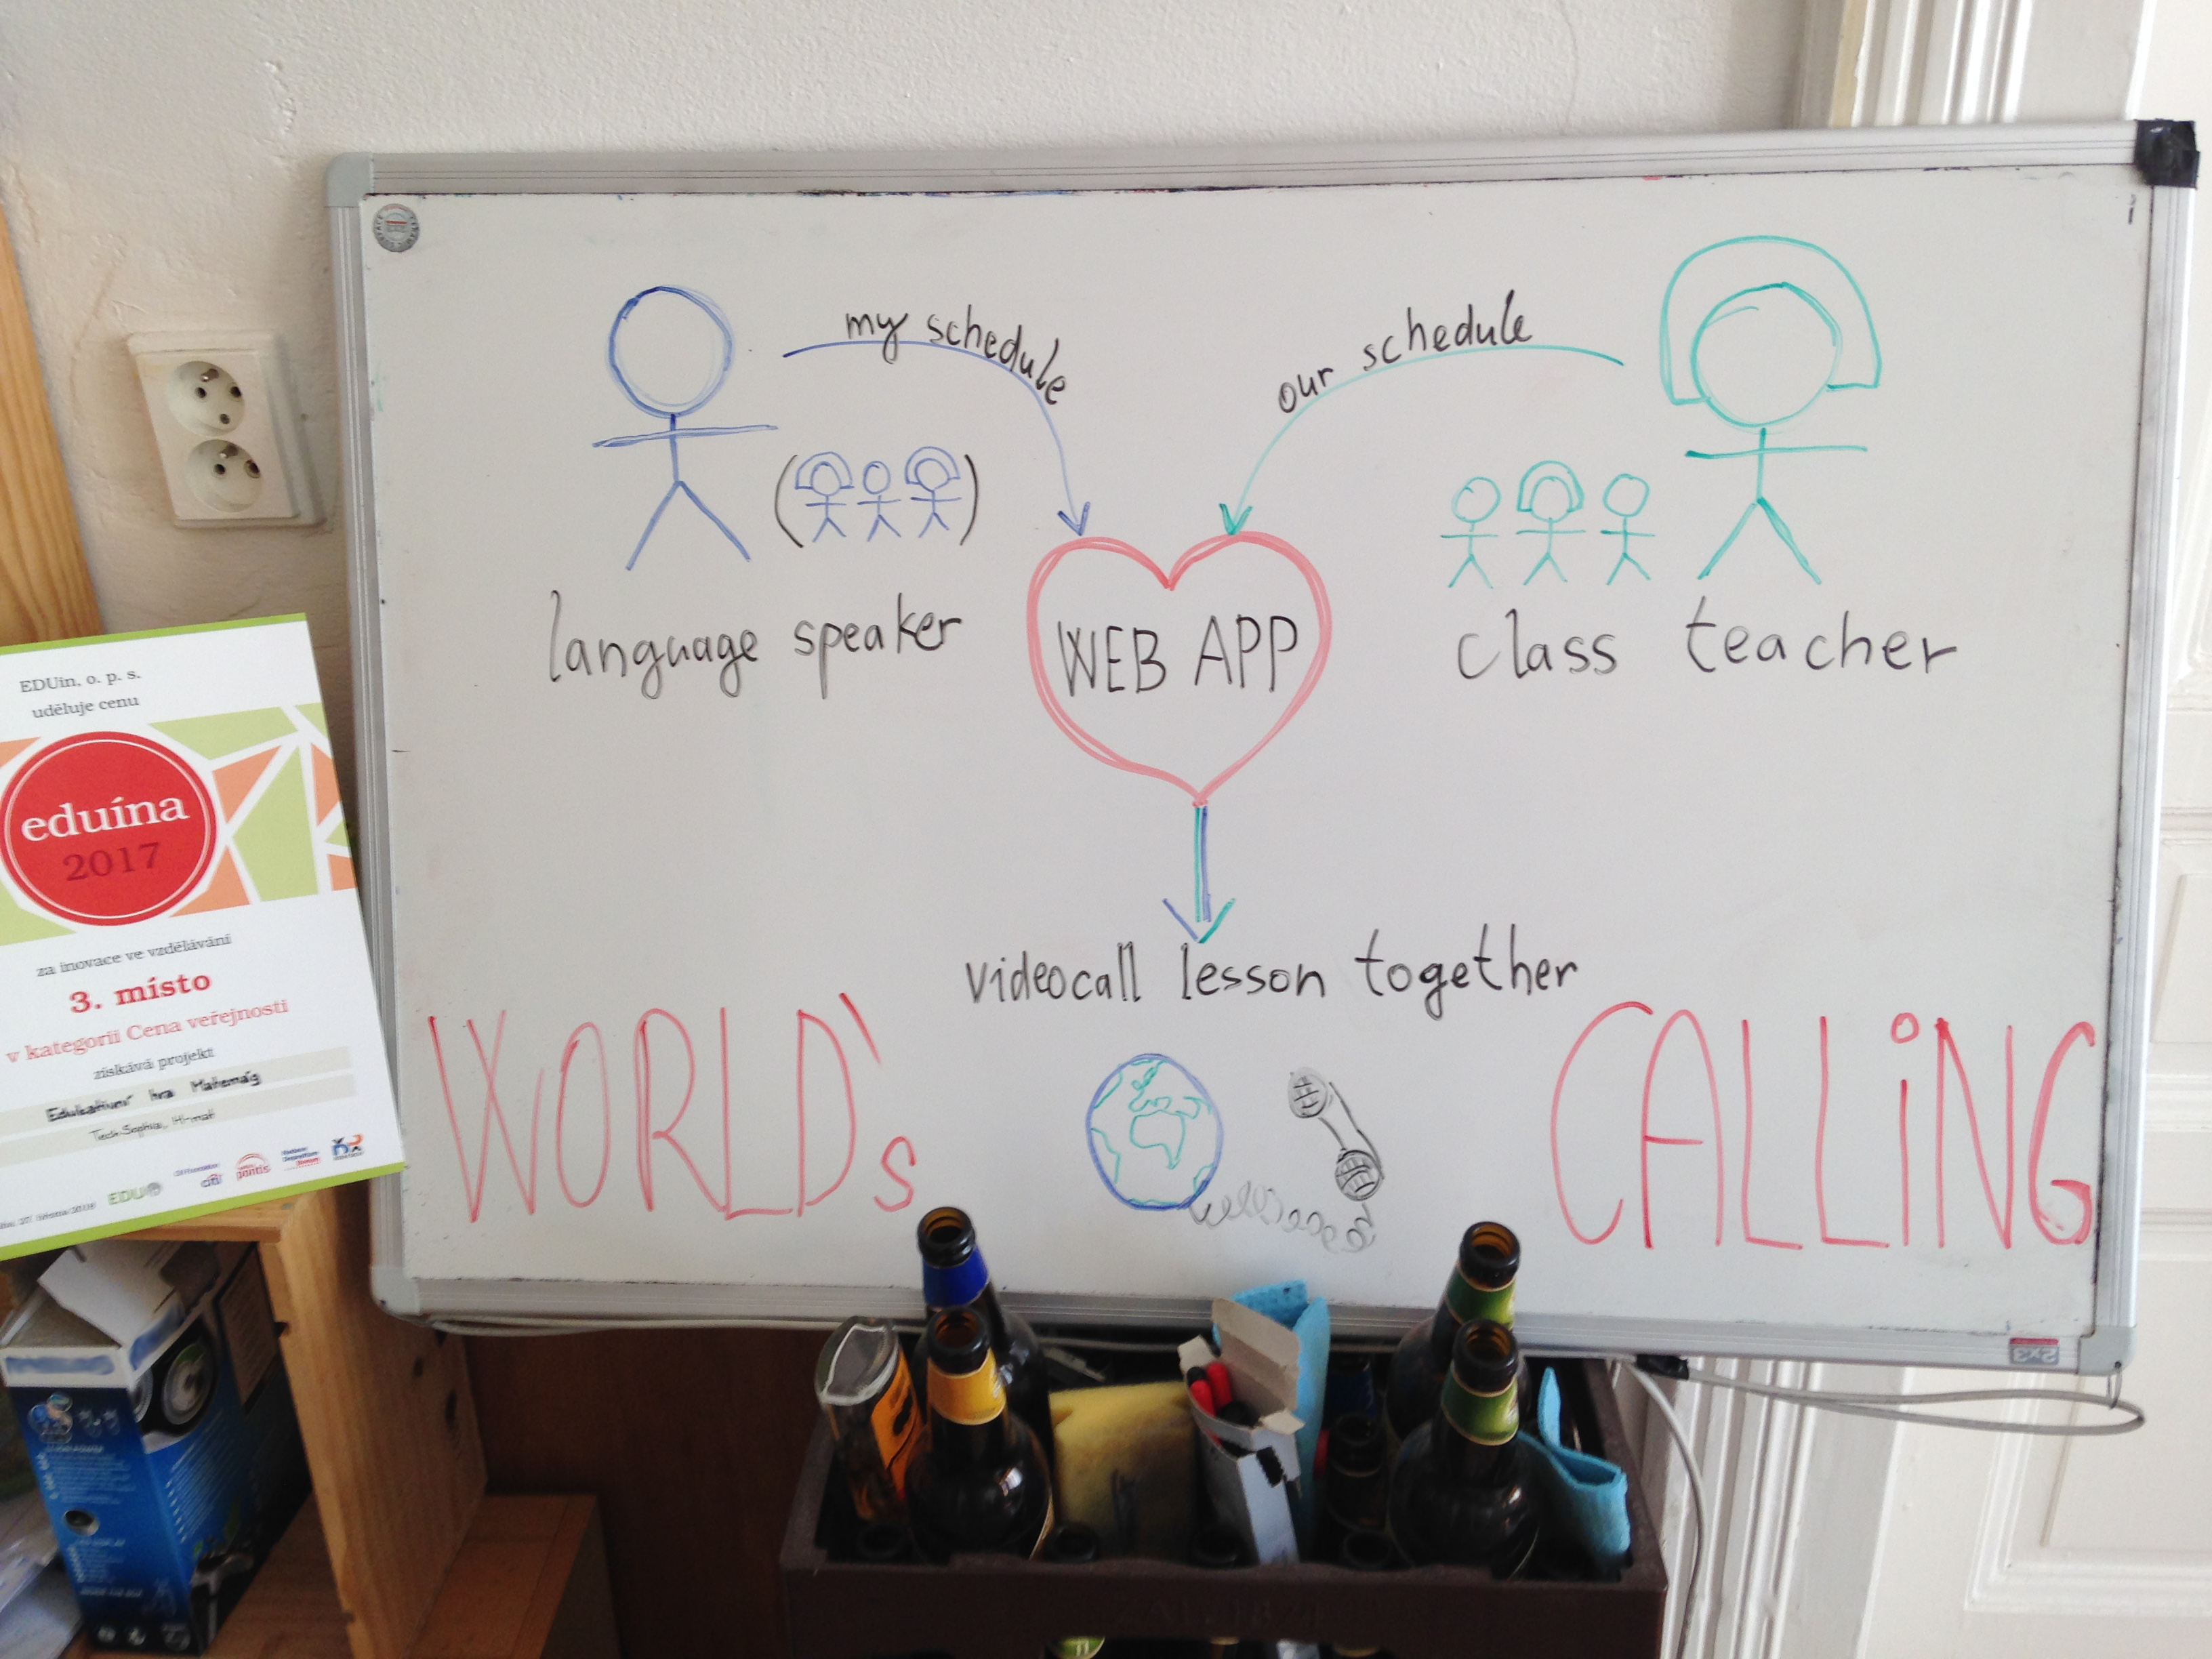 my schedule
our schedule
language speaker
WEB APP
class teacher
videocall lesson together
WORLD's
CALLiNG
EDUin, o. p. s.
uděluje cenu
eduína
2017
za inovace ve vzdělávání
3. místo
v kategorii Cena veřejnosti
získává projekt
Edukativní hra Matemág
TechSophia, H-mat
EDU
citi
pontis
2x3